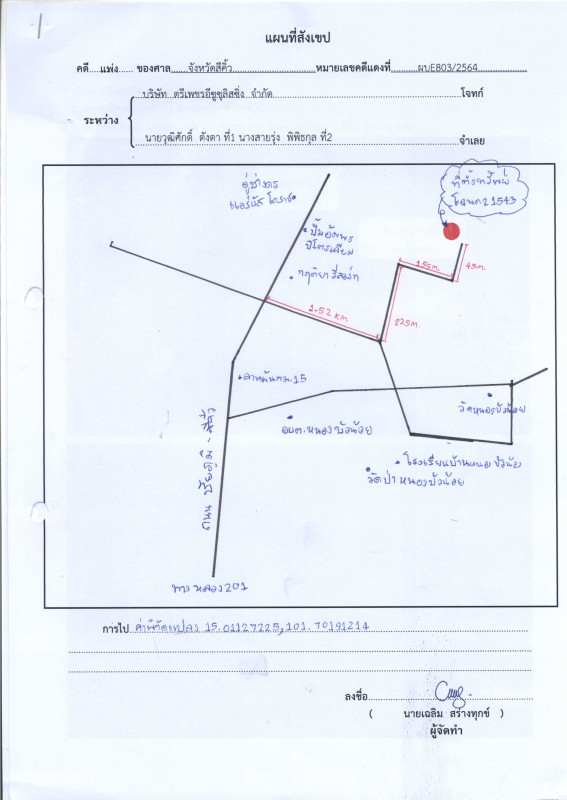 แผนที่สังเขป
คดี แพ่ง ของศาล จังหวัดสีคิ้ว หมายเลขคดีแดงที่ ผบE803/2564
บริษัท ตรีเพชรอีซูซุลิสซิ่ง จำกัด โจทก์
ระหว่าง
นายวุฒิศักดิ์ ดังตา ที่1 นางสายรุ่ง พิพิธกุล ที่2 จำเลย
ที่ตั้งทรัพย์
โฉนด 21543
อู่ช่าง
โคราช
ปั๊ม
ปิโตรเลียม
รีสอร์ท
155m.
45m.
1.52 km.
225m.
ลานมันกม.15
วัดหนองบัวน้อย
อบต.หนองบัวน้อย
โรงเรียนบ้านหนองบัวน้อย
วัดป่าหนองบัวน้อย
ถนน ชัยภูมิ - สีคิ้ว
ทางหลวง 201
การไป ค่าพิกัดแปลง 15.01127225,101.70191214
ลงชื่อ
( นายเฉลิม สร้างทุกข์ )
ผู้จัดทำ